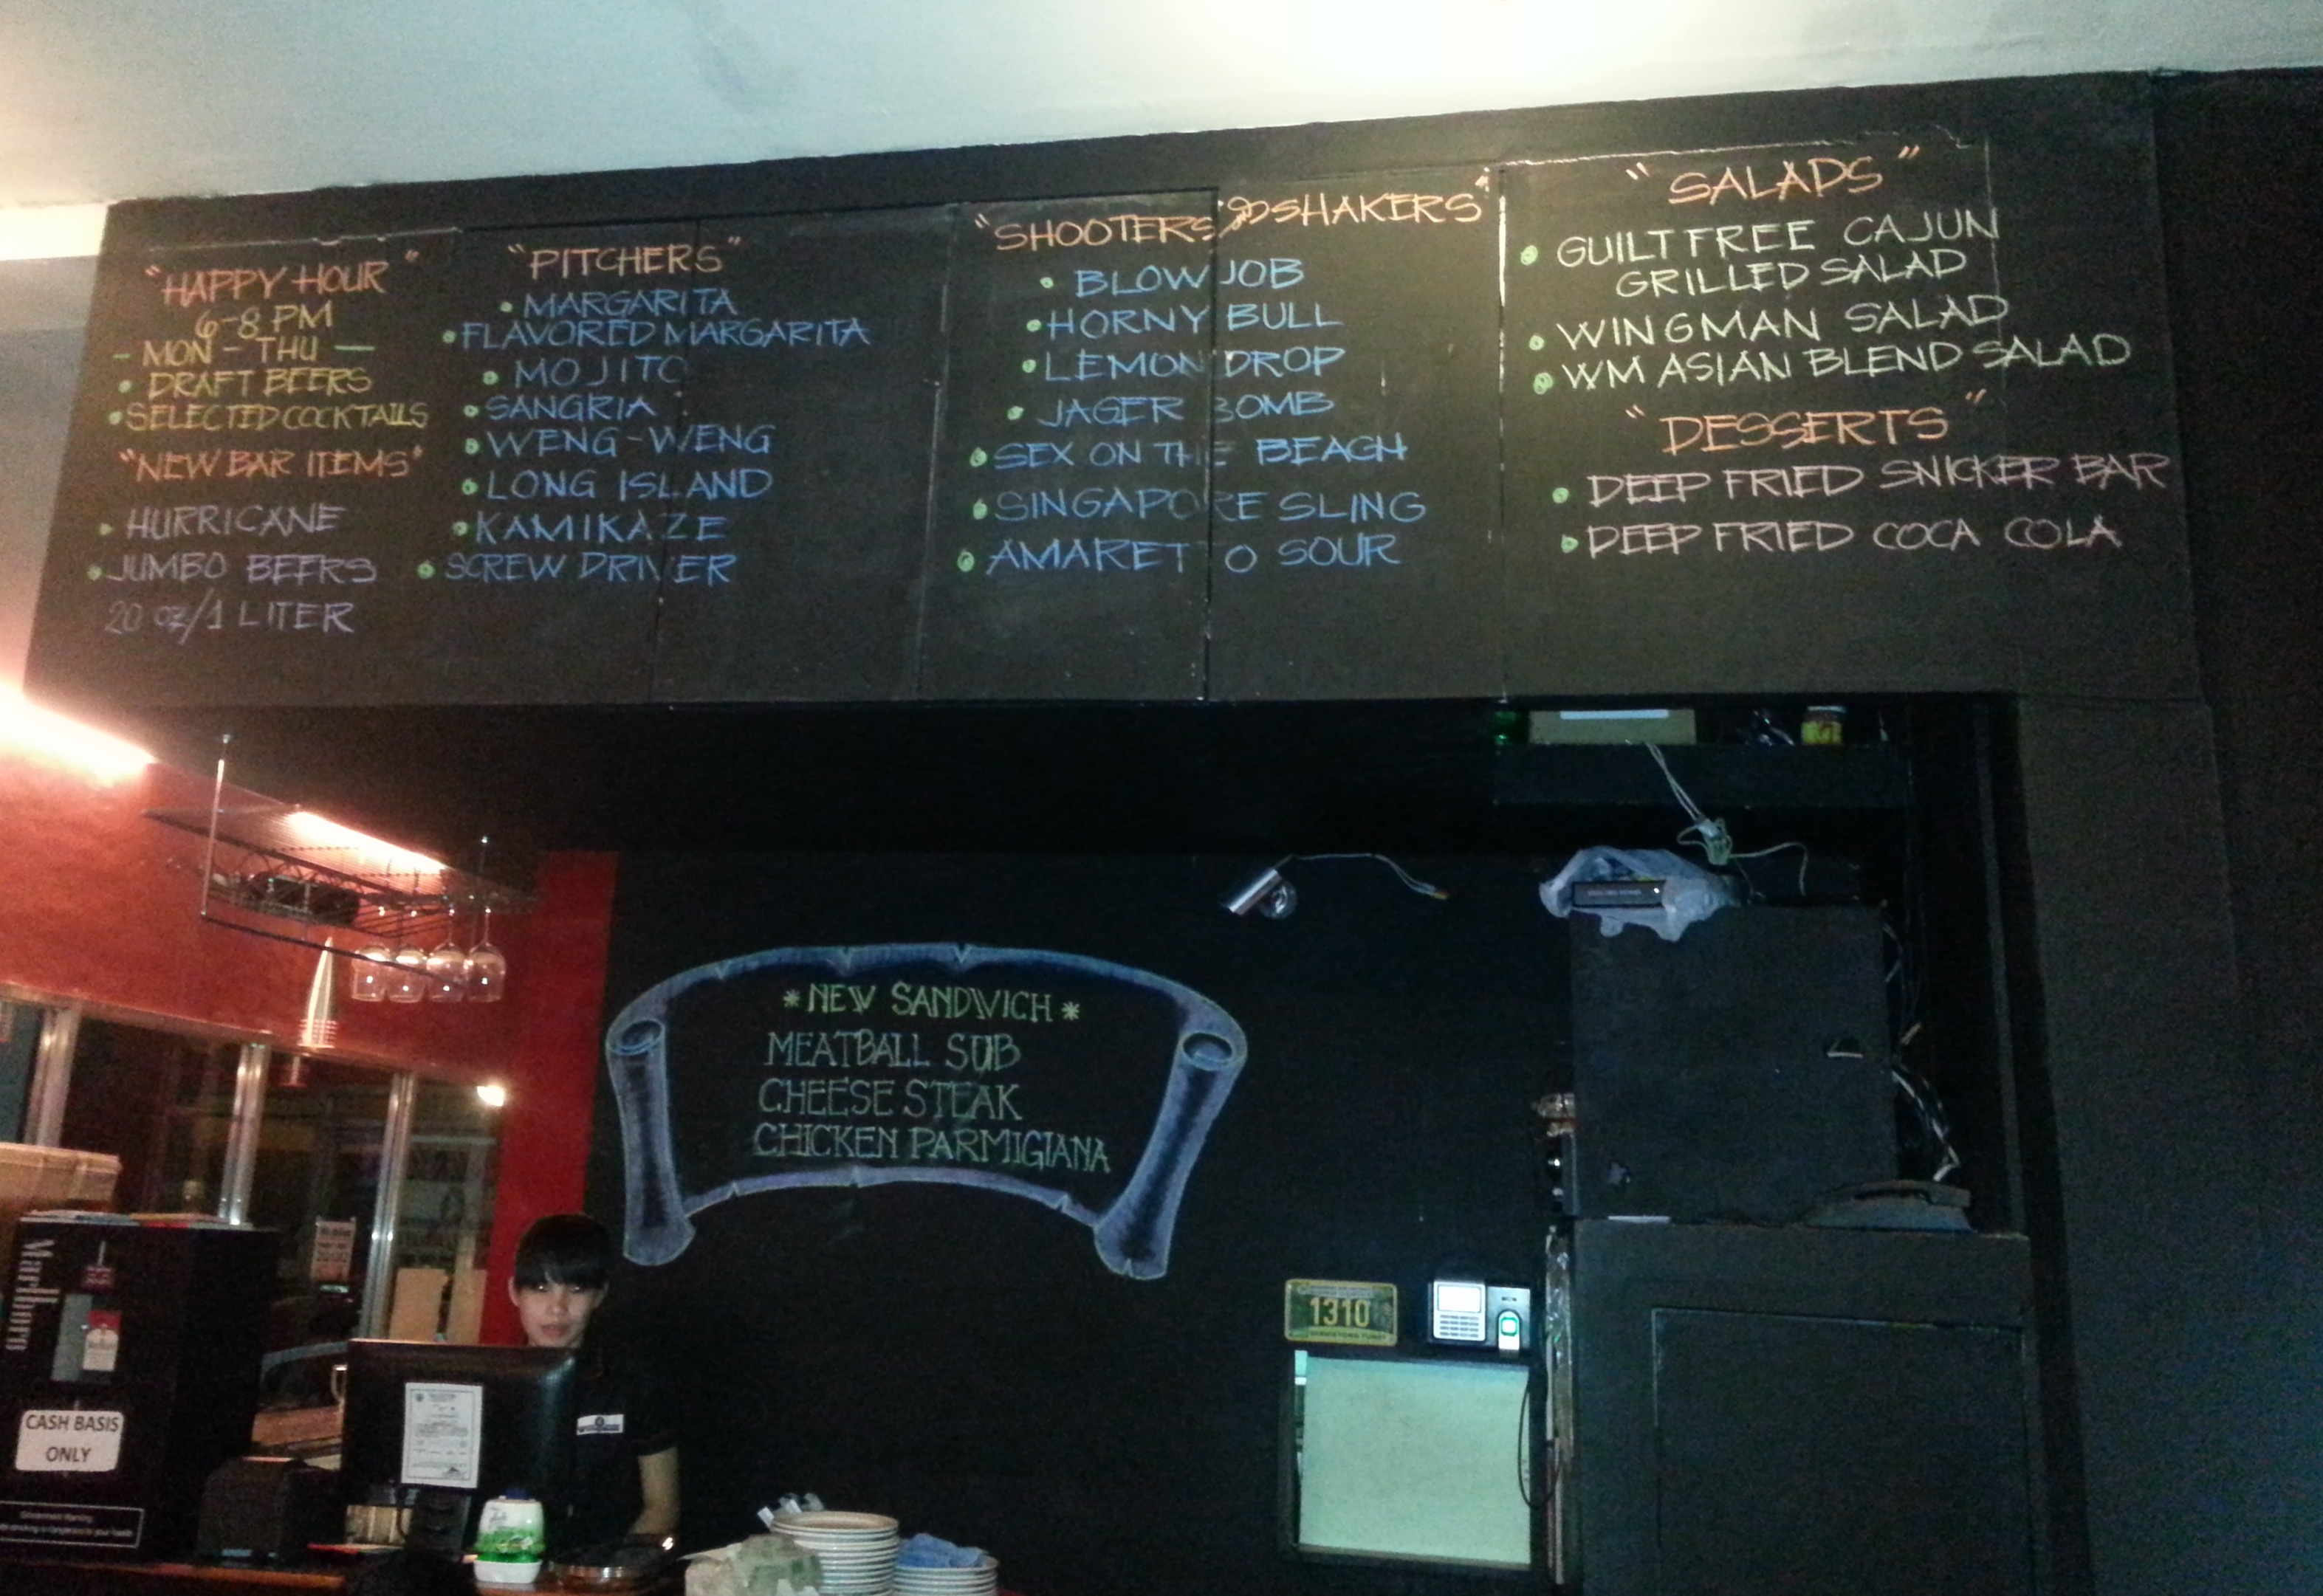 "HAPPY HOUR"
6-8 PM
- MON - THU -
• DRAFT BEERS
• SELECTED COCKTAILS
"NEW BAR ITEMS"
• HURRICANE
• JUMBO BEERS
20 oz/1 LITER
"PITCHERS"
• MARGARITA
• FLAVORED MARGARITA
• MOJITO
• SANGRIA
• WENG-WENG
• LONG ISLAND
• KAMIKAZE
• SCREW DRIVER
"SHOOTERS & SHAKERS"
• BLOW JOB
• HORNY BULL
• LEMON DROP
• JAGER BOMB
• SEX ON THE BEACH
• SINGAPORE SLING
• AMARETTO SOUR
"SALADS"
• GUILT FREE CAJUN
GRILLED SALAD
• WINGMAN SALAD
• WM ASIAN BLEND SALAD
"DESSERTS"
• DEEP FRIED SNICKER BAR
• DEEP FRIED COCA COLA
* NEW SANDWICH *
MEATBALL SUB
CHEESE STEAK
CHICKEN PARMIGIANA
1310
Marlboro
CASH BASIS
ONLY
Government Warning: